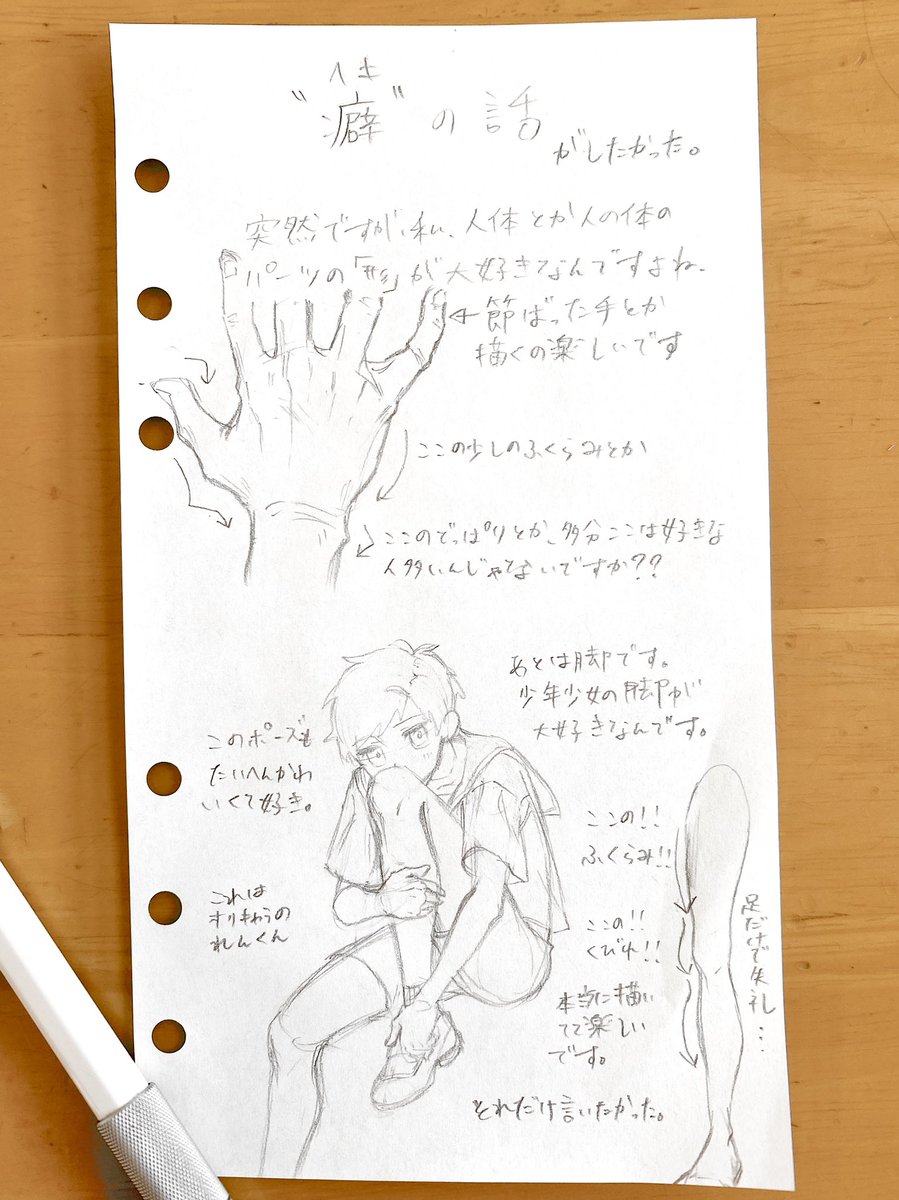 へき
"癖"の話
がしたかった。
突然ですが私、人体とか人の体の
パーツの「形」が大好きなんですよね、
←節ばった手とか
描くの楽しいです
ここの少しのふくらみとか
ここのでっぱりとか、多分ここは好きな
人多いんじゃないですか??
あとは脚です。
少年少女の脚が
大好きなんです。
このポーズも
たいへんかわ
いくて好き。
これは
オリキャラの
れんくん
ここの!!
ふくらみ!!
ここの!!
くびれ!!
本当に描い
てて楽しい
です。
足だけで失礼...
それだけ言いたかった。